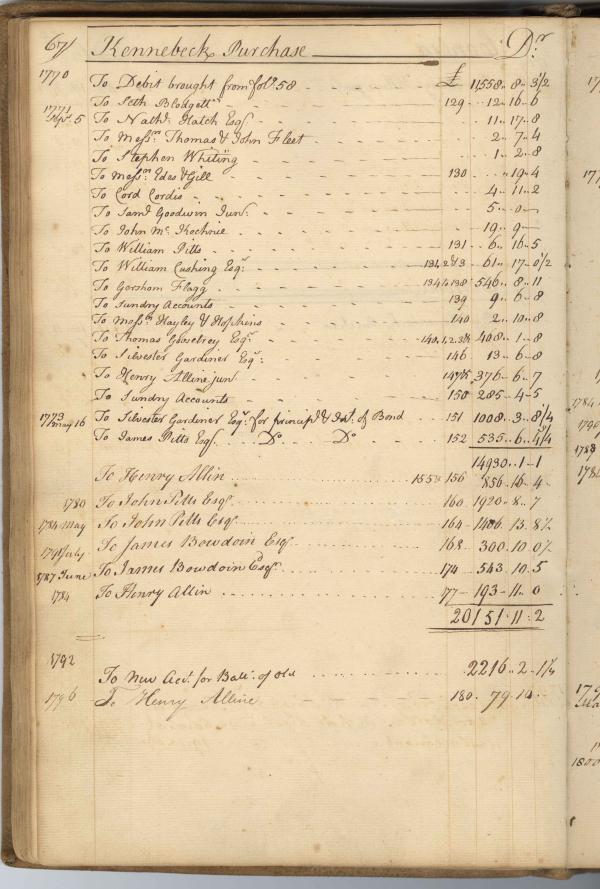 67 Kennebeck Purchase Dr
1770 To Debit brought from folo 58 £ 11558.. 8.. 3 1/2
To Seth Blodgett 129 12.. 16.. 6
1771 5 To Nathl. Hatch Esqr. 11.. 17.. 8
To Messrs. Thomas & John Fleet 2.. 7.. 4
To Stephen Whiting 1.. 2.. 8
To Messrs. Edes & Gill 130 .. 19.. 4
To Cord Cordis 4.. 11.. 2
To Saml. Goodwin Junr. 5.. 0..
To John Mc. Kechnie 19.. 9..
To William Pitts 131 6.. 16.. 5
To William Cushing Esqr. 131, 2 & 3 61.. 17.. 0 1/2
To Gershom Flagg 134 138 546.. 8.. 11
To Sundry Accounts 139 9.. 6.. 8
To Messrs. Hayley & Hopkins 140 2.. 10.. 8
To Thomas Esqr. 140, 1, 2, 3 408.. 1.. 8
To Silvester Gardiner Esqr. 146 13.. 6.. 8
To Henry Alline junr. 376.. 6.. 7
To Sundry Accounts 150 285.. 4.. 5
1773 May 16 To Silvester Gardiner Esqr. for princip & Int. of Bond 151 1008.. 3.. 8 1/4
To James Pitts Esqr. Do Do 152 535.. 6.. 4 3/4
14930.. 1.. 1
To Henry Allin 155 156 856.. 16.. 4
1780 To John Pitts Esqr. 160 1920.. 8.. 7
1784 May To John Pitts Esqr. 164 1406.. 13.. 8
July To James Bowdoin Esqr. 168 300.. 10.. 0
1787 June To James Bowdoin Esqr. 174 543.. 10.. 5
1784 To Henry Allin 77 193.. 11.. 0
20151.. 11.. 2
1792 To New Acct. for Balle. of Old 2216.. 2.. 1
1796 To Henry Alline 180 79.. 10..